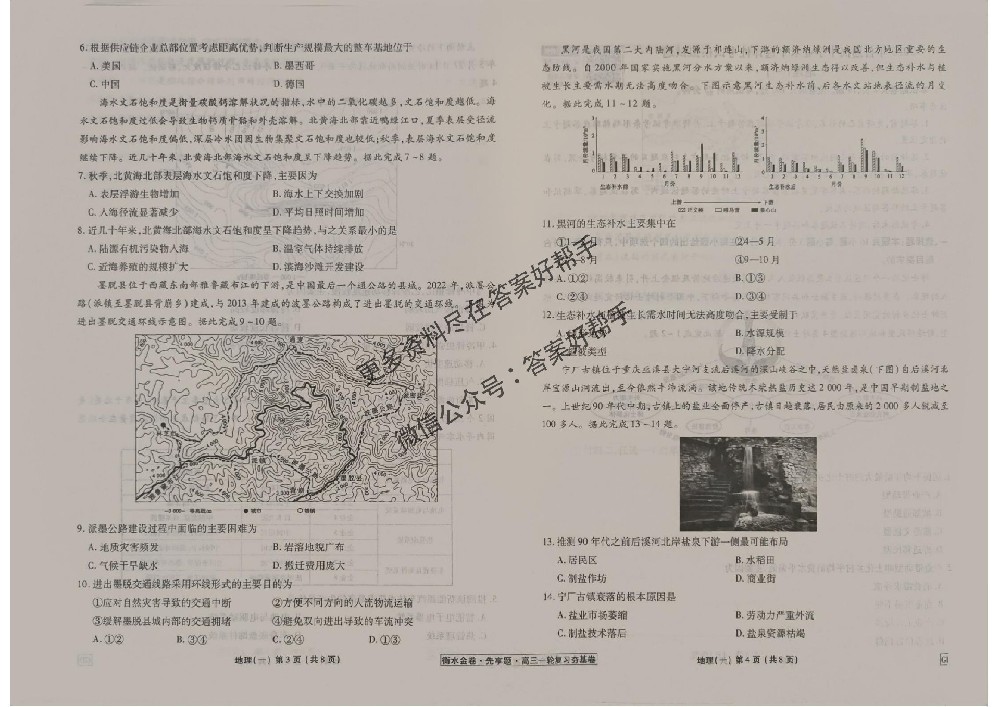 6. 根据供应链企业总部位置考虑距离优势,判断生产规模最大的整车基地位于
A. 美国
B. 墨西哥
C. 中国
D. 德国
海水文石饱和度是衡量碳酸钙溶解状况的指标,水中的二氧化碳越多,文石饱和度越低。海
水文石饱和度过低会导致生物钙质骨骼和外壳溶解。北黄海北部靠近鸭绿江口,夏季表层受径流
影响海水文石饱和度偏低,深层冷水团因生物集聚文石饱和度也较低;秋季,表层海水文石饱和度
继续下降。近几十年来,北黄海北部海水文石饱和度呈下降趋势。据此完成7~8题。
7. 秋季,北黄海北部表层海水文石饱和度下降,主要因为
A. 表层浮游生物增加
B. 海水上下交换加剧
C. 入海径流显著减少
D. 平均日照时间增加
8. 近几十年来,北黄海北部海水文石饱和度呈下降趋势,与之关系最小的是
A. 陆源有机污染物入海
B. 温室气体持续排放
C. 近海养殖的规模扩大
D. 滨海沙滩开发建设
墨脱县位于西藏东南部雅鲁藏布江的下游,是中国最后一个通公路的县城。2022年,派墨公
路(派镇至墨脱县背崩乡)建成,与2013年建成的波墨公路构成了进出墨脱的交通环线。
进出墨脱交通环线示意图。据此完成9~10题。
9. 派墨公路建设过程中面临的主要困难为
A. 地质灾害频发
B. 岩溶地貌广布
C. 气候干旱缺水
D. 搬迁费用庞大
10. 进出墨脱交通线路采用环线形式的主要目的为
①应对自然灾害导致的交通中断
②方便不同方向的人流物流运输
③缓解墨脱县城内部的交通拥堵
④避免双向进出导致的车流冲突
A. ①②
B. ③④
C. ②④
D. ①③
地理(一) 第3页(共8页)
衡水金卷·先享题·高三一轮复习夯基卷
黑河是我国第二大内陆河,发源于祁连山,下游的额济纳绿洲是我国北方地区重要的生
态防线。自2000年国家实施黑河分水方案以来,额济纳绿洲生态得以改善,但生态补水与植
被生长主要需水期无法高度吻合。下图示意黑河生态补水前、后各水文站地表径流的月变
化。据此完成11~12题。
生态补水前
月份
生态补水后
月份
上游
下游
11. 黑河的生态补水主要集中在
②4—5月
8月
④9—10月
A. ①②
B. ①③
C. ②④
D. ③④
12. 生态补水与植被生长需水时间无法高度吻合,主要受制于
B. 水源规模
D. 降水分配
宁厂古镇位于重庆巫溪县大宁河支流后溪河的深山峡谷之中,天然盐泉(下图)自后溪河北
岸宝源山洞流出,至今依然汩汩流淌。该地传统木柴熬盐历史达2 000年,是中国早期制盐地之
一。上世纪90年代中期,古镇上的盐业全面停产,古镇日趋衰落,居民由原来的2 000多人锐减至
100多人。据此完成13~14题。
13. 推测90年代之前后溪河北岸盐泉下游一侧最可能布局
A. 居民区
B. 水稻田
C. 制盐作坊
D. 商业街
14. 宁厂古镇衰落的根本原因是
A. 盐业市场萎缩
B. 劳动力严重外流
C. 制盐技术落后
D. 盐泉资源枯竭
地理(一) 第4页(共8页)
更多资料尽在答案好帮手
微信公众号:答案好帮手